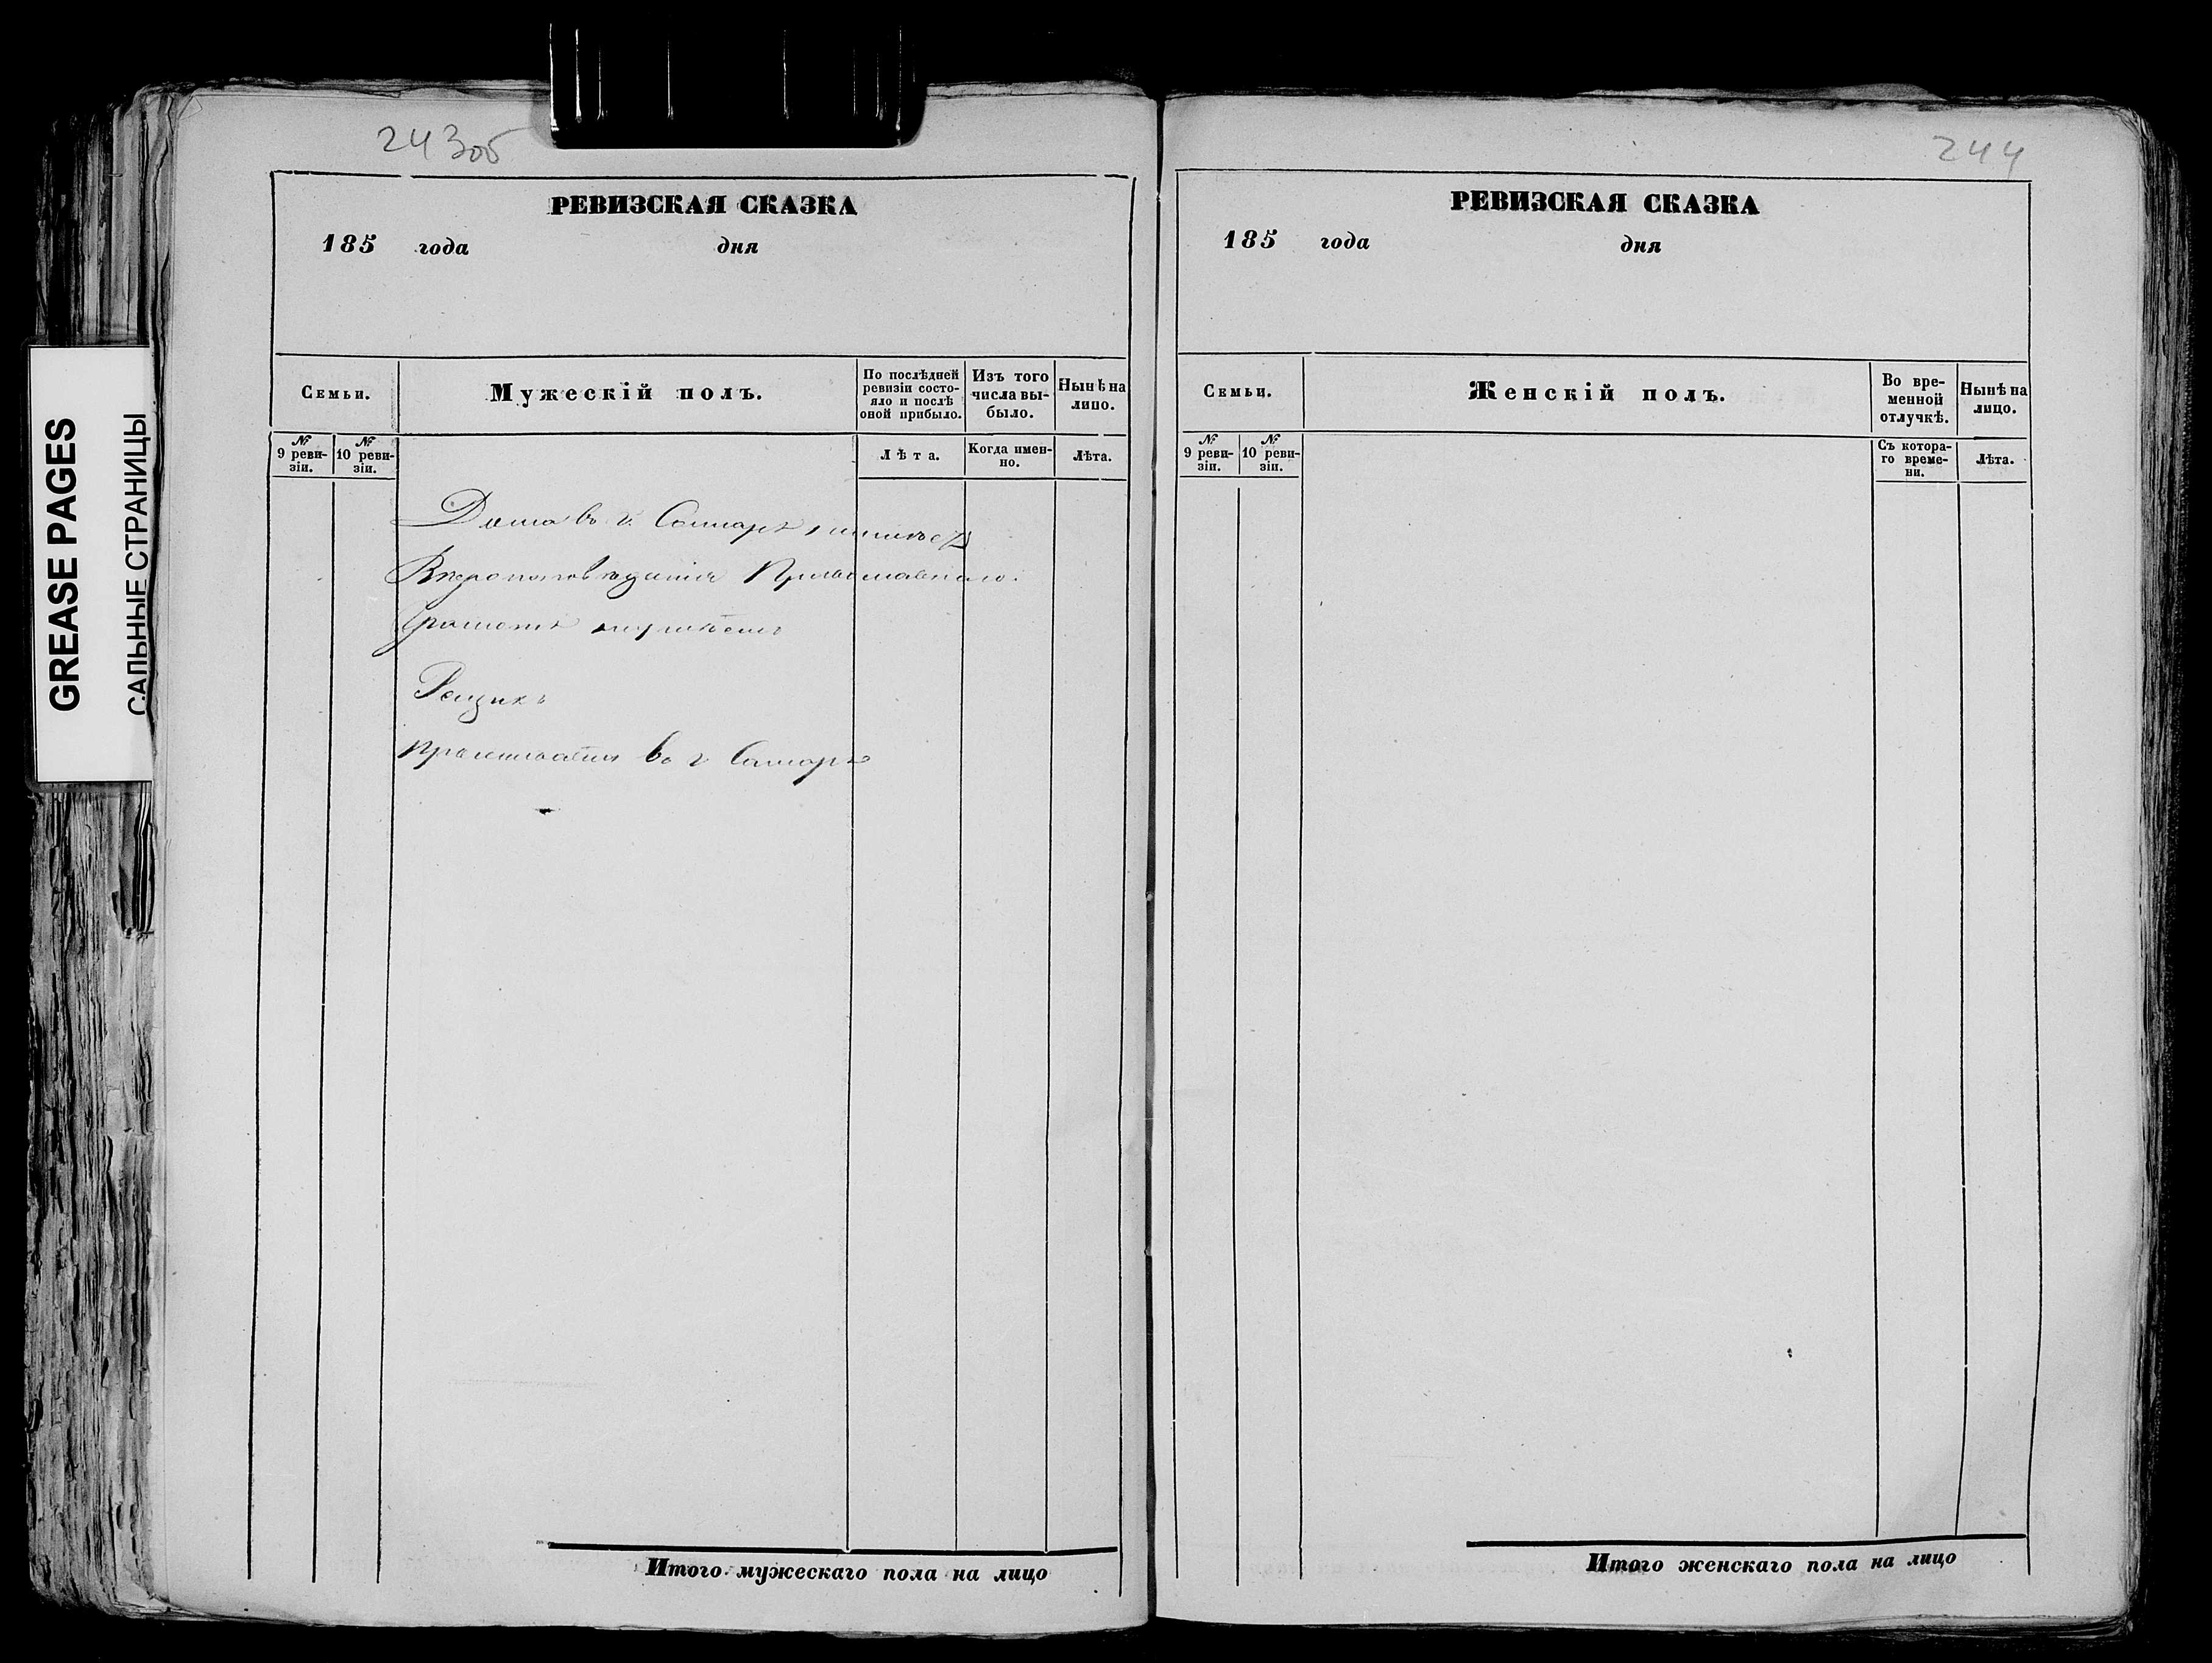 GREASE PAGES
САЛЬНЫЕ СТРАНИЦЫ
243об
РЕВИЗСКАЯ СКАЗКА
185 года дня
Семьи.
Мужескій полъ.
По послѣдней ревизіи состояло и послѣ оной прибыло.
Изъ того числа выбыло.
Нынѣ на лицо.
№ 9 ревизіи.
№ 10 ревизіи.
Лѣта.
Когда именно.
Лѣта.
Дома въ г. Самарѣ
Вѣроисповѣданія Православнаго.
Грамотѣ
въ г Самарѣ
Итого мужескаго пола на лицо
244
РЕВИЗСКАЯ СКАЗКА
185 года дня
Семьи.
Женскій полъ.
Во временной отлучкѣ.
Нынѣ на лицо.
№ 9 ревизіи.
№ 10 ревизіи.
Съ котораго времени.
Лѣта.
Итого женскаго пола на лицо